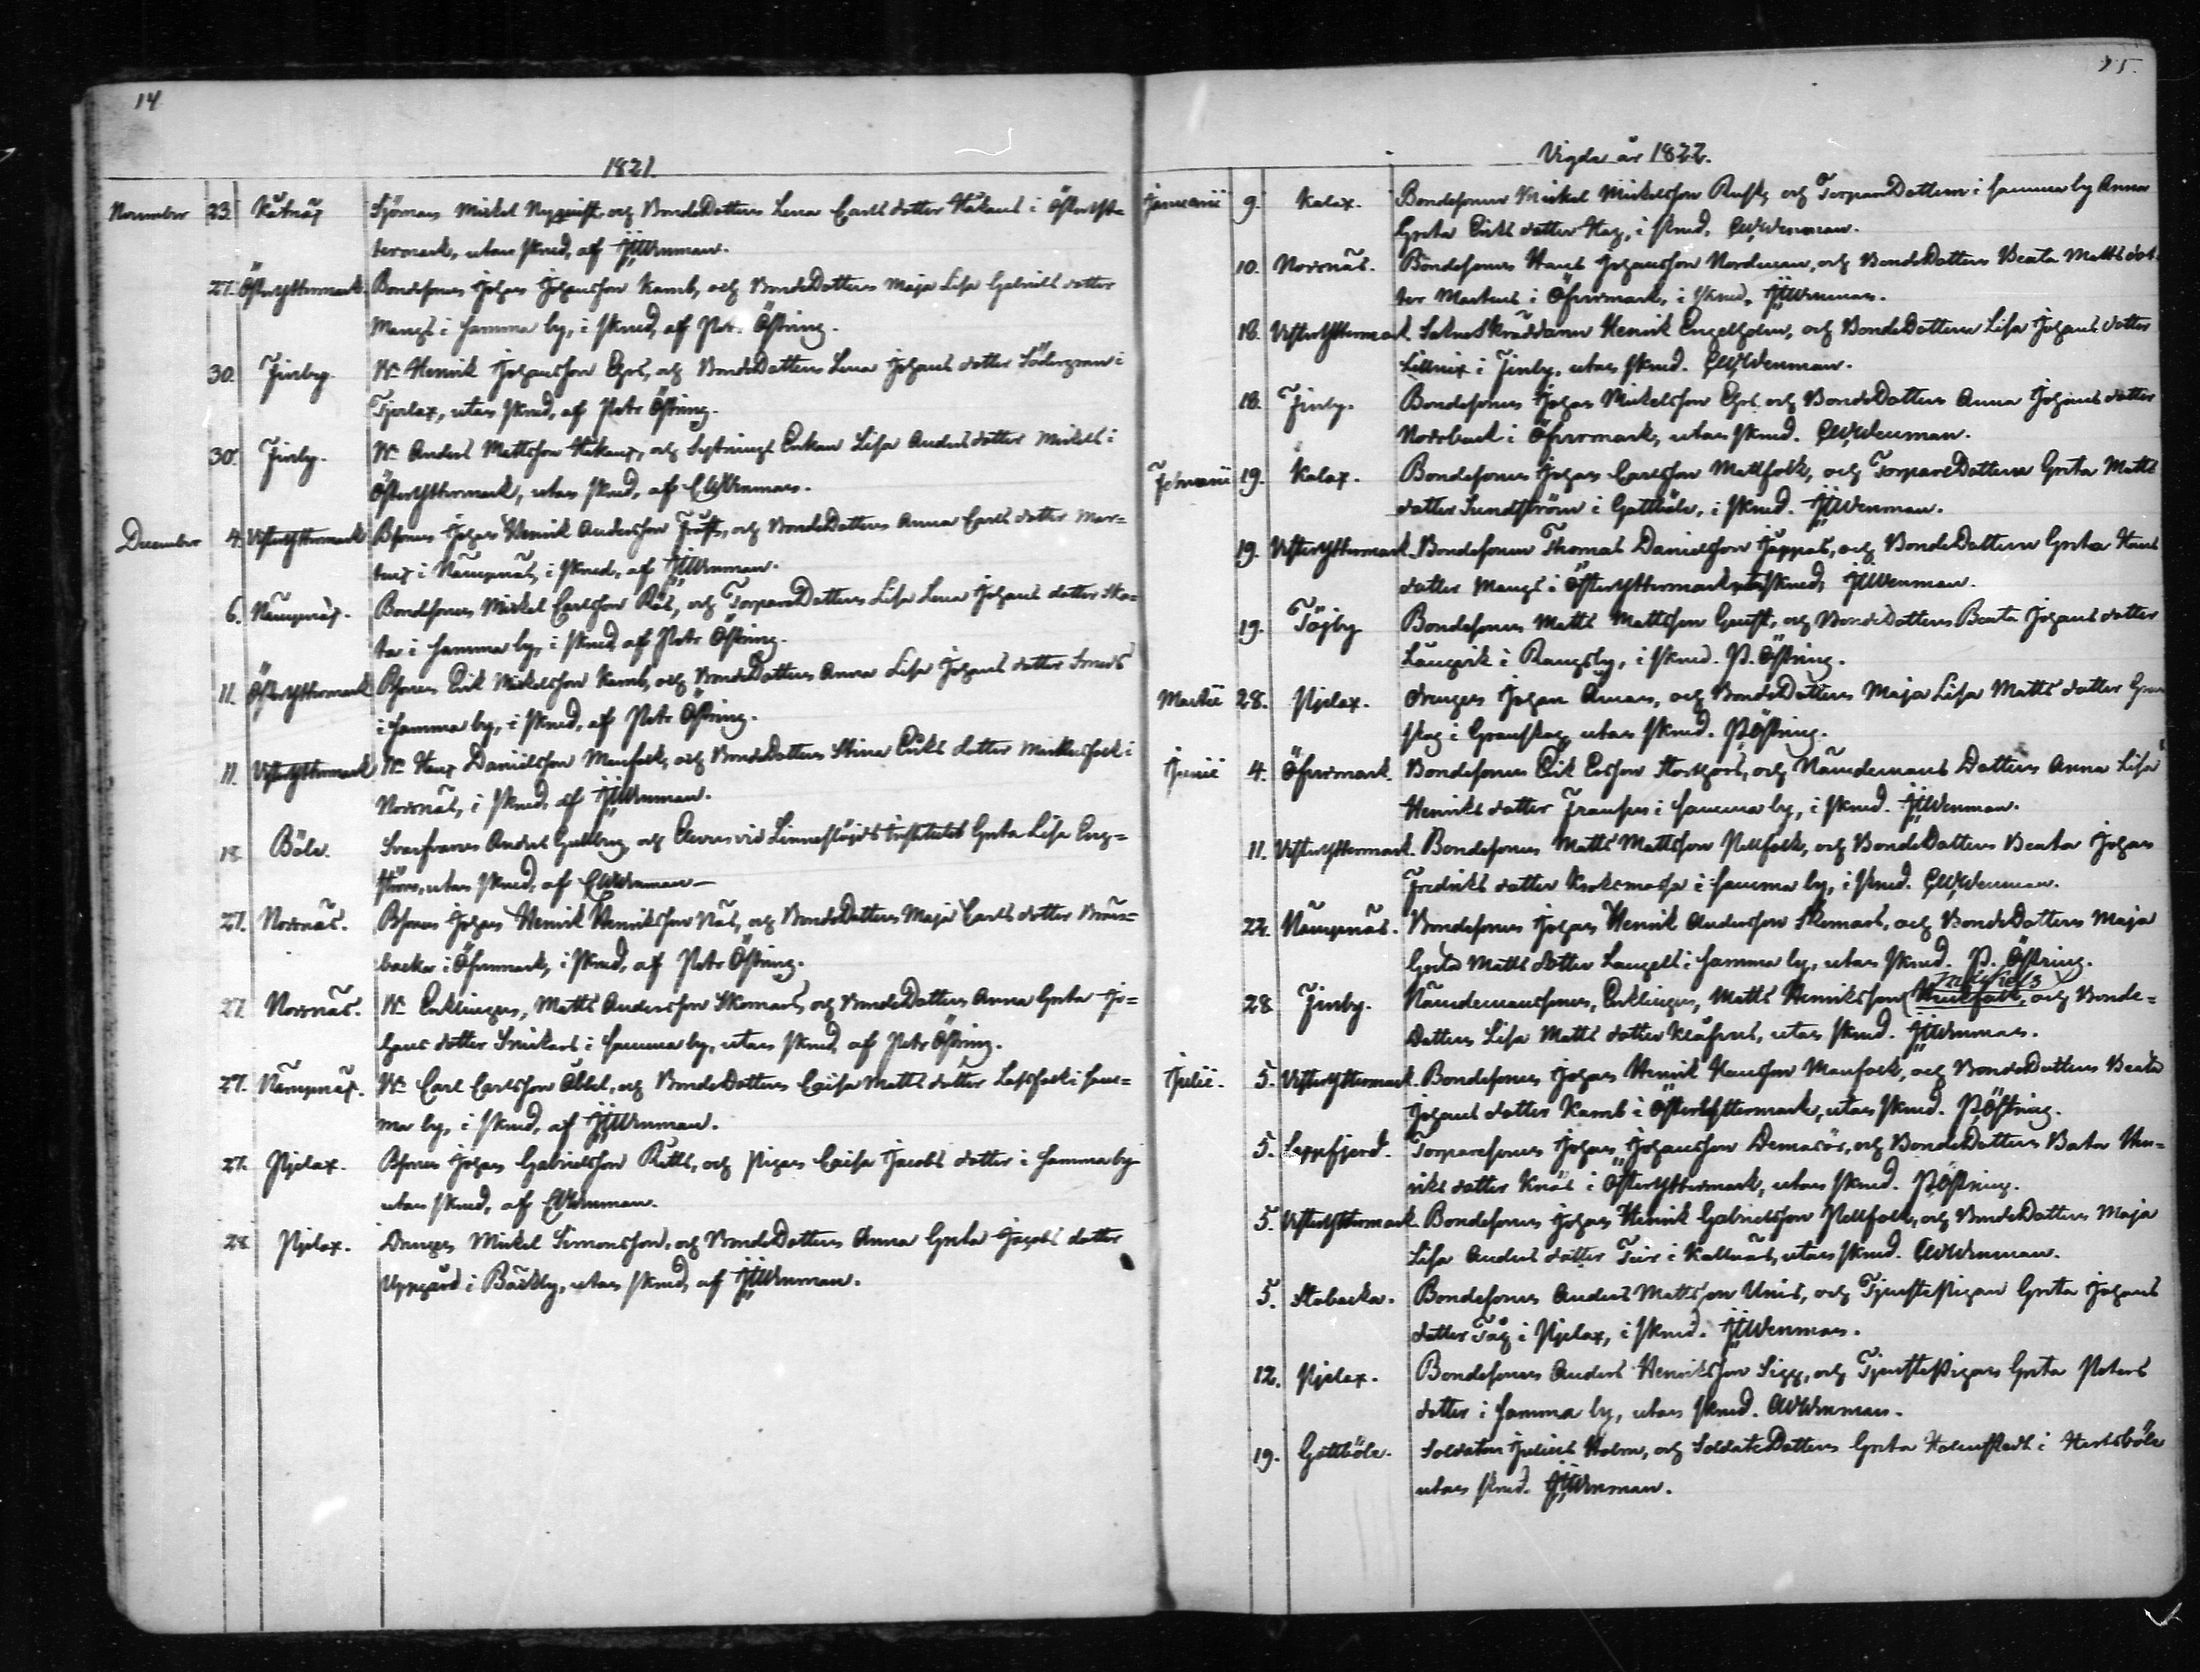 14
1821.
November 23. Kåtnäs Sjöman Mickel Nyqvist, och BondeDottren Lena Carls dotter Håkans i Österyt-
termark, utan skrud, af JJWenman.
27. Österyttermark. Bondesonen Johan Johansson Kamb, och BondeDottren Maja Lisa Gabriels dotter
Mangs i samma by, i skrud, af Petr. Östring.
30. Finby. Henrik Johansson Ehrs, och BondeDottren Lena Johans dotter Södergran i
Tjerlax, utan skrud, af Petr Östring.
30. Finby. Anders Mattsson Håkans, och Enkan Lisa Anders dotter Mickels i
Österyttermark, utan skrud, af CWWenman.
December 4. Vesteryttermark Bsonen Johan Henrik Andersson Frost, och BondeDottren Anna Carls dotter Mar-
tens i Nämpnäs, i skrud, af JJWenman.
6. Nämpnäs. Bondesonen Mickel Carlsson Rös, och TorpareDottren Lisa Lena Johans dotter Ska-
ta i samma by, i skrud, af Petr Östring.
11. Österyttermark Bsonen Erik Mickelsson Kamb, och BondeDottren Anna Lisa Johans dotter Smeds
i samma by, i skrud, af Petr Östring.
11. Vesteryttermark Hans Danielsson Manfolk, och BondeDottren Stina Eriks dotter Mickelsfolk i
Norrnäs, i skrud, af JJWenman.
18. Böle. Svarfvaren Anders Gullberg och Eleven vid Linneslöjds Institutet Greta Lisa Eng-
ström, utan skrud, af CWWenman
27. Norrnäs. Bsonen Johan Henrik Henriksson Näs, och BondeDottren Maja Carls dotter Brän-
backa i Öfvermark, i skrud, af Petr Östring.
27. Norrnäs. Enklingen, Matts Andersson Skomars, och BondeDottren Anna Greta Jo-
hans dotter Snickars i samma by, utan skrud, af Petr Östring.
27. Nämpnäs. Carl Carlsson Åbbel, och BondeDottren Caisa Matts dotter Lassfolk i sam-
ma by, i skrud, af JJWenman.
27. Pjelax. Bsonen Johan Gabrielsson Ratts, och Pigan Caisa Jacobs dotter i samma by
utan skrud, af CWWenman.
28. Pjelax. Drengen Mickel Simonsson, och BondeDottren Anna Greta Jacobs dotter
Uppgård i Bäckby, utan skrud, af JJWenman.
15.
Vigde år 1822.
Januarii 9. Kalax. Bondesonen Mickel Mickelsson Rusk, och TorpareDottren i samma by Anna
Greta Eriks dotter Hag, i skrud. CWWenman.
10. Norrnäs. Bondesonen Hans Johansson Nordman, och BondeDottren Beata Matts dot-
ter Martens i Öfvermark, i skrud, JJWenman.
18. Vesteryttermark SockneSkräddaren Henrik Engelholm, och BondeDottren Lisa Johans dotter
Lillnix i Finby, utan skrud. CWWenman.
18. Finby. Bondesonen Johan Mickelsson Ehrs och BondeDottren Anna Johans dotter
Norrback i Öfvermark, utan skrud. CWWenman.
Februarii 19. Kalax. Bondesonen Johan Carlsson Mattfolk, och TorpareDottren Greta Matts
dotter Sundström i Gottböle, i skrud. JJWenman.
19. Vesteryttermark Bondesonen Thomas Danielsson Jåppas, och BondeDottren Greta Hans
dotter Mangs i Österyttermark, utan skrud, JJWenman.
19. Töjby Bondesonen Matts Mattsson Gust, och BondeDottren Beata Johans dotter
Långvik i Rangsby, i skrud. P. Östring.
Martii 28. Pjelax. drengen Johan Åman, och BondeDottren Maja Lisa Matts dotter Gran
skog i Granskog, utan skrud. PÖstring.
Junii 4. Öfvermark. Bondesonen Erik Ersson Storkors, och Nämdemans Dottren Anna Lisa
Henriks dotter Fransen i samma by, i skrud. JJWenman.
11. Vesteryttermark. Bondesonen Matts Mattsson Pellfolk, och BondeDottren Beata Johan
Fredriks dotter Kroksmassa i samma by, i skrud. CWWenman.
22. Nämpnäs. Bondesonen Johan Henrik Andersson Skomars, och BondeDottren Maja
Greta Matts dotter Langels i samma by, utan skrud. P. Östring.
Mickels
28 Finby. Nämdemanssonen, Enklingen, Matts Henriksson och Bonde-
Dottren Lisa Matts dotter Klåfsens, utan skrud. JJWenman.
Julii. 5. Vesteryttermark. Bondesonen Johan Henrik Hansson Manfolk, och BondeDottren Beata
Johans dotter Kamb i Österyttermark, utan skrud. PÖstring.
5. Lappfjerd. Torparesonen Johan Johansson Demasör, och BondeDottren Beata Hen-
riks dotter Knös i Österyttermark, utan skrud. PÖstring.
5. Vesteryttermark. Bondesonen Johan Henrik Gabrielsson Pellfolk, och BondeDottren Maja
Lisa Anders dotter Teir i Kallnäs, utan skrud. CWWenman.
5. Stobacka. Bondesonen Anders Mattsson Unis, och TjenstePigan Greta Johans
dotter Tåg i Pjelax, i skrud. JJWenman.
12. Pjelax. Bondesonen Anders Henriksson Sigg, och TjenstePigan Greta Peters
dotter i samma by, utan skrud. CWWenman.
19. Gottböle. Soldaten Julius Holm, och SoldateDottren Greta Holmstedt i Hertsböle
utan skrud. JJWenman.